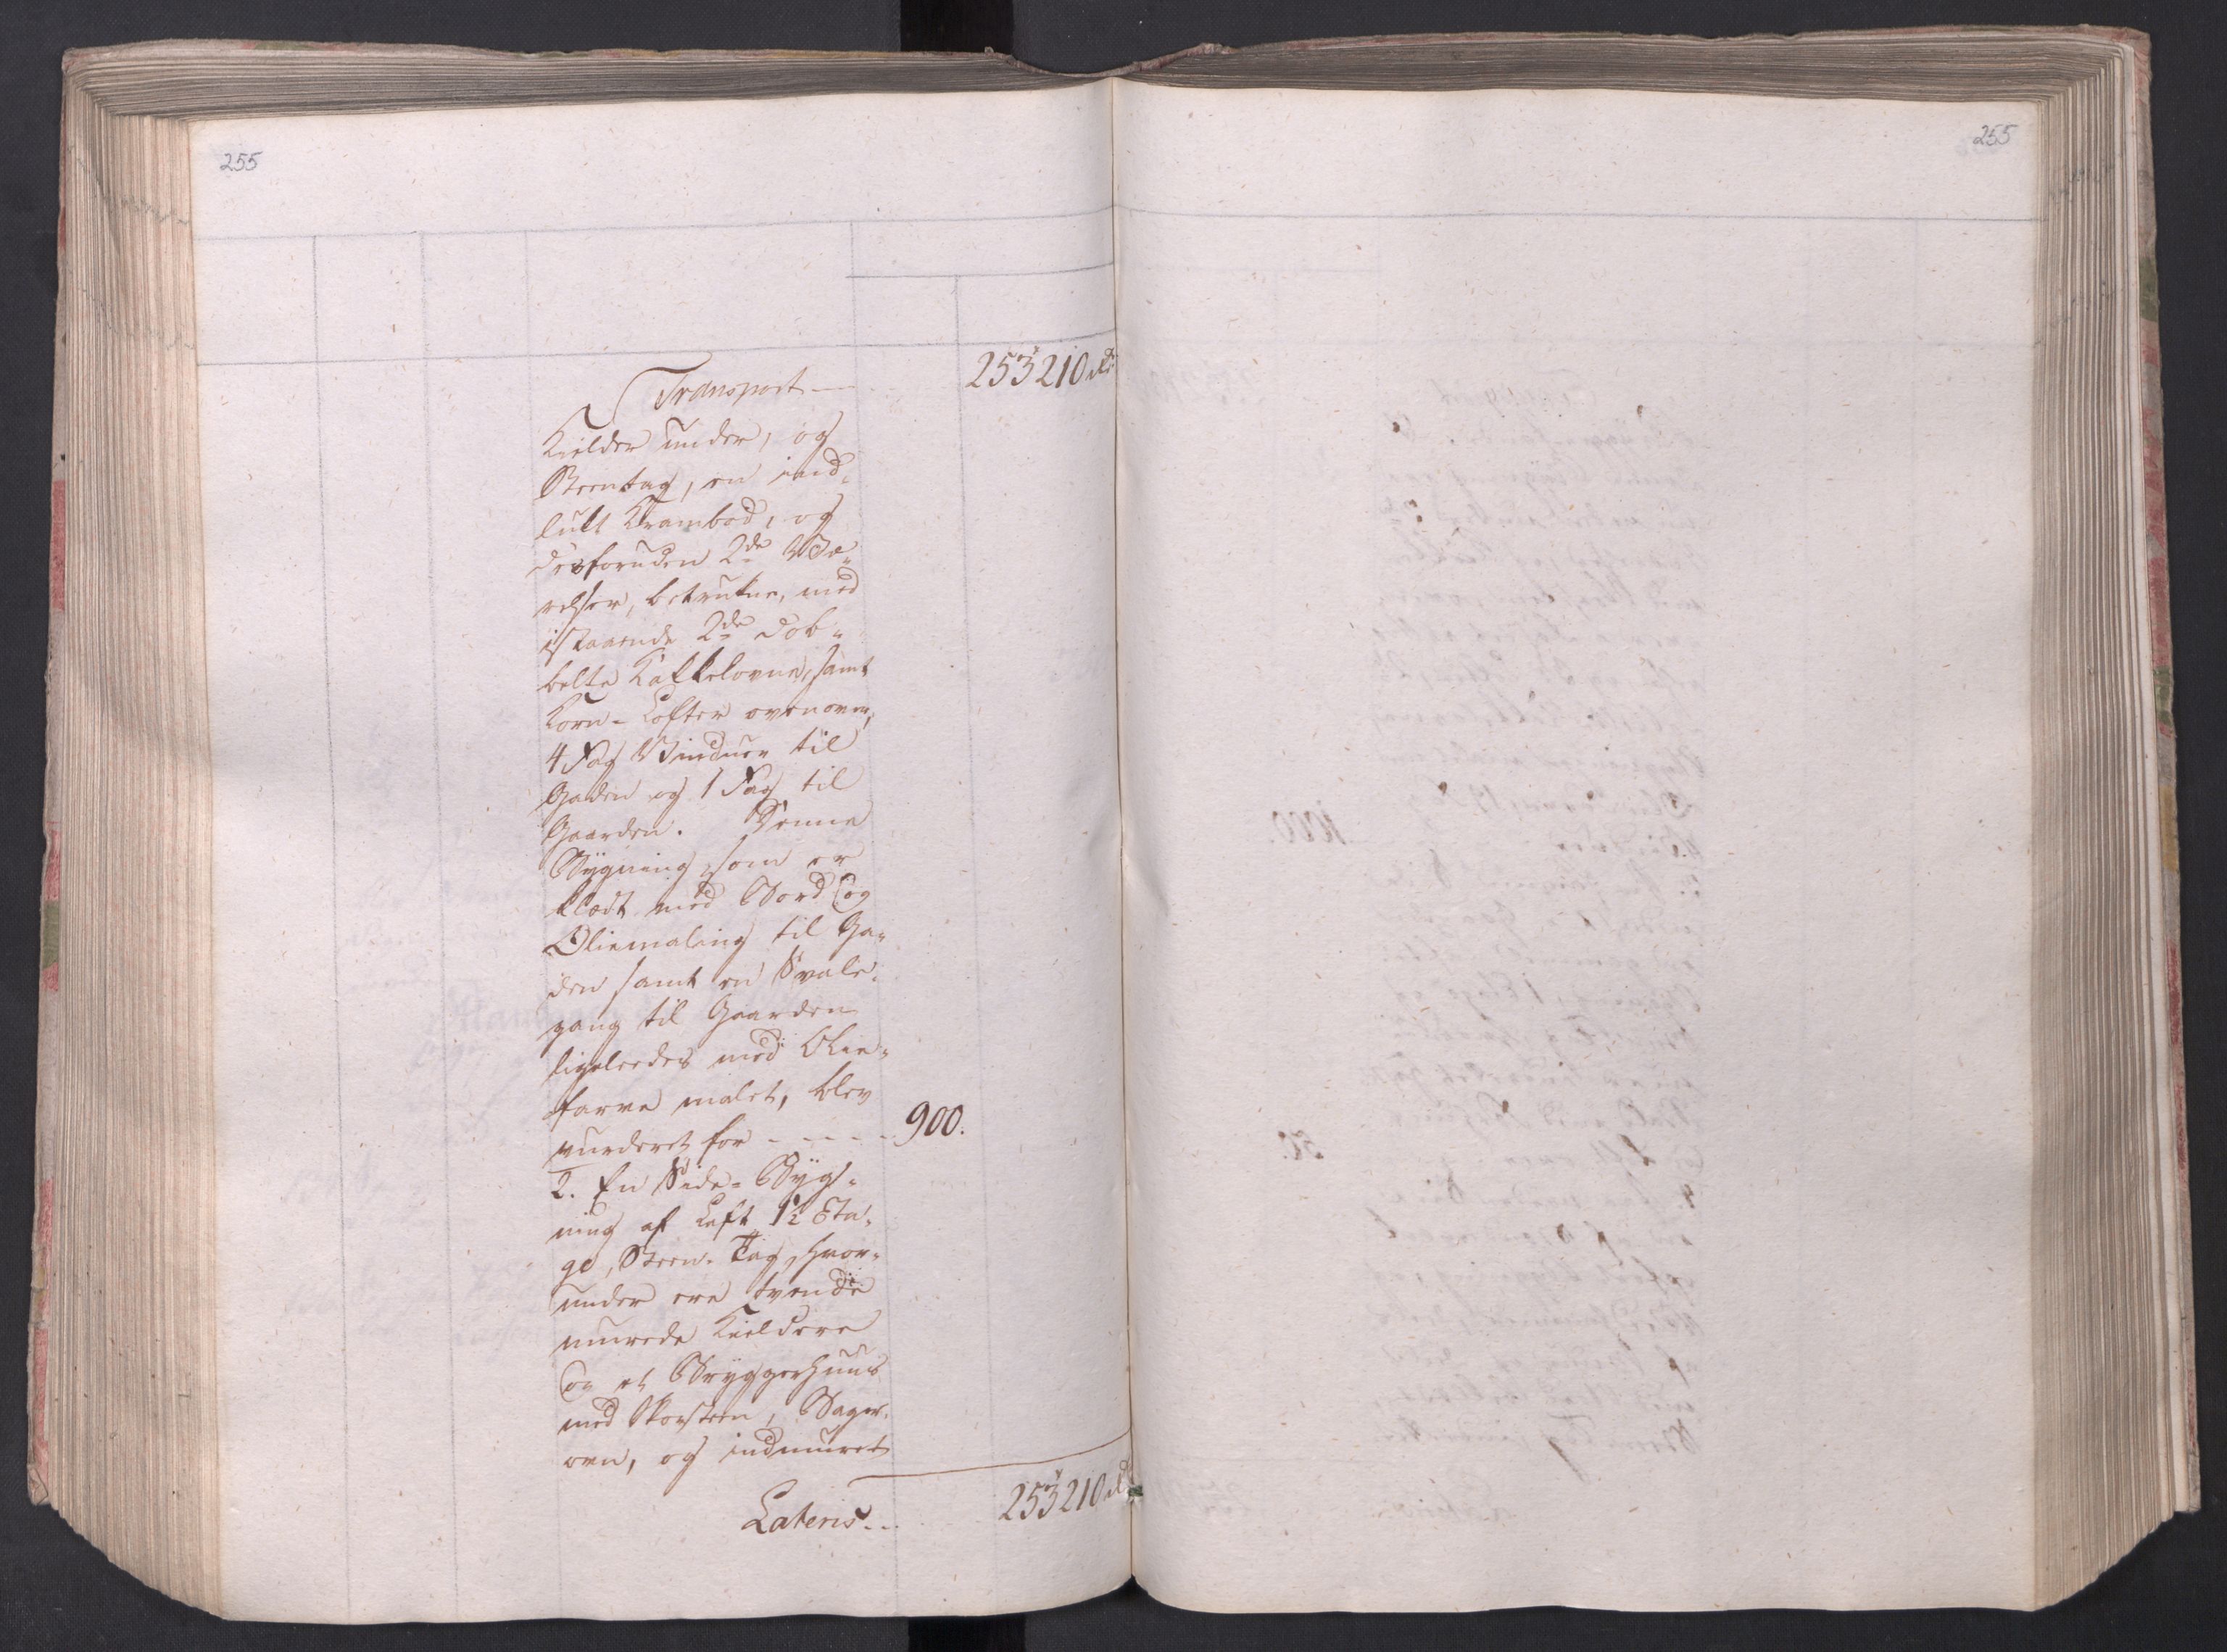 255
255
Transport — 253210 rd
Kielder under, og
Steentag, en ind-
lukt Krambod, og
desforuden 2de Væ-
relser, betrukne, med
istaaende 2de dob-
belte Kakkelovne, samt
Korn-Lofter ovenover,
4 Fag Vinduer til
Gaden og 1 Fag til
Gaarden. Denne
Bygning, som er
klædt med Bord og
Oliemaling til Ga-
den samt en Svale-
gang til Gaarden
ligeledes med Olie-
farve malet, blev
vurderet for - - - - 900.
2. En Side-Byg-
ning af Laft, 1½ Eta-
ge, Steen-Tag, hvor-
under ere tvende
murede Kieldere
og et Bryggerhuus
med Skorsteen, Bager-
ovn, og indmuret
Lateris... 253210 rd